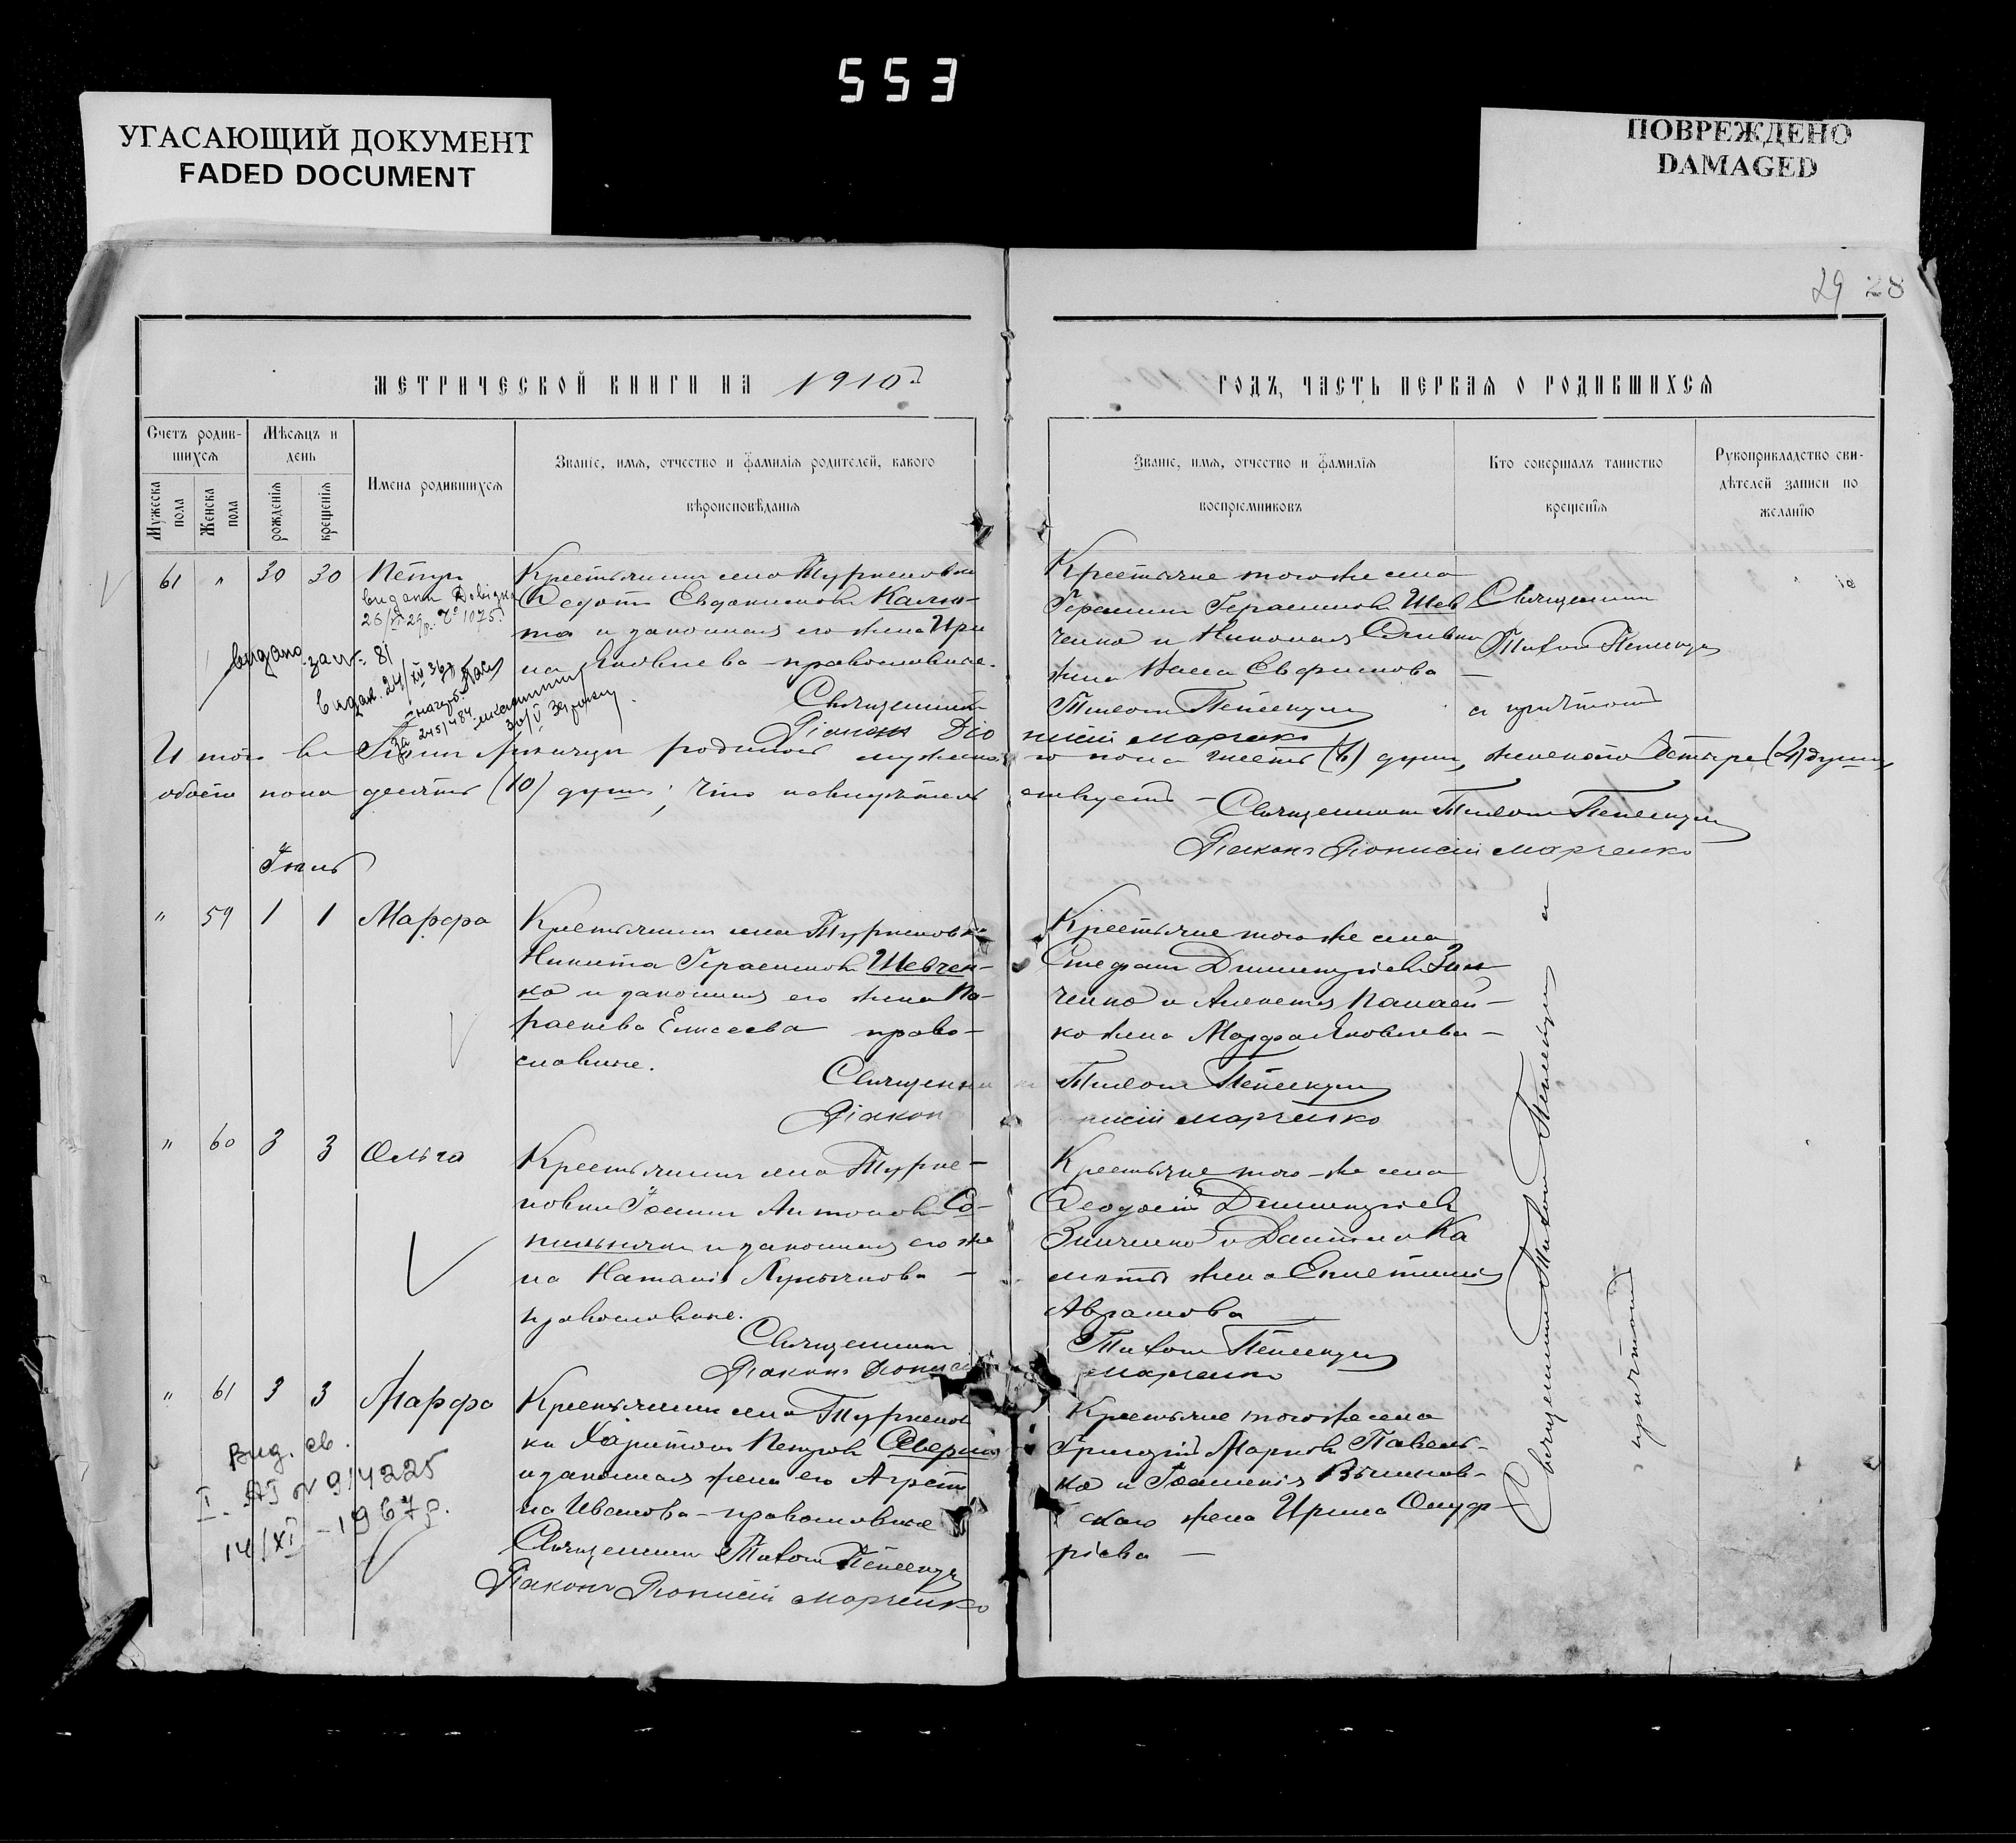 553
УГАСАЮЩИЙ ДОКУМЕНТ
FADED DOCUMENT
ПОВРЕЖДЕНО
DAMAGED
29 28
МЕТРИЧЕСКОЙ КНИГИ НА 1910
ГОДЪ, ЧАСТЬ ПЕРВАЯ О РОДИВШИХСЯ
Счетъ родив-
шихся
Мужеска пола
Женска пола
Мѣсяцъ и
день
рожденія
крещенія
Имена родившихся
Званіе, имя, отчество и фамилія родителей, какого
вѣроисповѣданія
Званіе, имя, отчество и фамилія
воспріемниковъ
Кто совершалъ таинство
крещенія
Рукоприкладство сви-
дѣтелей записи по
желанію
61 " 30 30 Петръ
26/VI 29р. № 1075.
видано за № 81
Крестьянинъ села Турпеновки
Федотъ Евдокимовъ Калю-
та и законная его жена Ири
на Яковлева - православные.
Священникъ
Діаконъ Діо
Крестьяне того же села
Герасимъ Герасимовъ Шев
ченко и Николая
жена Анна Ефимова
Тихонъ
нисій Марченко
Священникъ
Тихонъ
съ причтомъ
Итого въ Іюнѣ мѣсяцѣ родилось мужеска
го пола шесть (6) душъ, женскаго четыре (4) души,
обоего пола десять (10) душъ; что и свидѣтель
ствуетъ - Священникъ Тихонъ
Діаконъ Діонисій Марченко
Іюль
" 59 1 1 Марфа
Крестьянинъ села Турпеновки
Никита Герасимовъ Шевчен-
ко и законная его жена Па-
раскева Елисеева право-
славные.
Священни
Діакон
Крестьяне того же села
Стефанъ Димитріевъ Зин
ченко и Алексѣя Панасен-
ко жена Марфа Яковлева -
Тихонъ
нисій Марченко
" 60 3 3 Ольга
Крестьянинъ села Турпе-
новки Іоаннъ Антоновъ Со-
пильнякъ и законная его же
на Наталія Лукьянова -
православные.
Священникъ
Діаконъ Діонисій
Крестьяне того-же села
Феодосій Димитріевъ
Зинченко и Даніила Ка
люты жена Екатерина
Аврамова
Тихонъ
Марченко
" 61 3 3 Марфа
Вид. св.
I - АЗ № 914225
14/XI - 1967р.
Крестьянинъ села Турпенов
ки Харитонъ Петровъ Северинъ
и законная жена его Агрепи
на Иванова - православные
Священникъ Тихонъ
Діаконъ Діонисій Марченко
Крестьяне того же села
Григорій Марковъ Павлен-
ко и Іоанникія
скаго жена Ирина Онуф-
ріева -
Священникъ Тихонъ съ
причтомъ